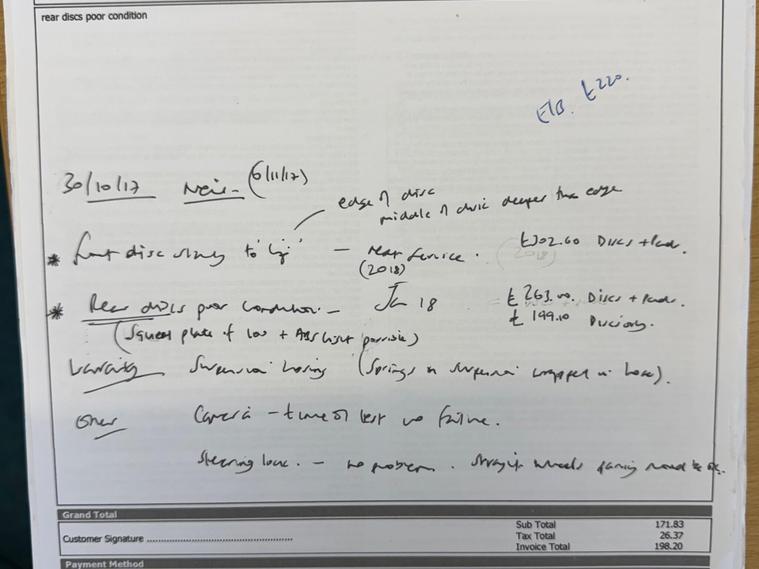 rear discs poor condition
£220.
30/10/17 Neil - (6/11/17)
edge of disc
middle of disc deeper than edge
* front disc starting to 'lip' — next service. £302.60 Discs + Pads.
(2018)
* Rear discs poor condition. — Jan 18 £263.00. Discs + Pads.
£199.10 Discs only.
(Squeal plate if low + ABS light possible)
Warranty Suspension housing (Springs in suspension wrapped in hose).
Other Camera — time of test no failure.
Steering lock. — no problem. straight wheels
Grand Total
Customer Signature
Sub Total 171.83
Tax Total 26.37
Invoice Total 198.20
Payment Method